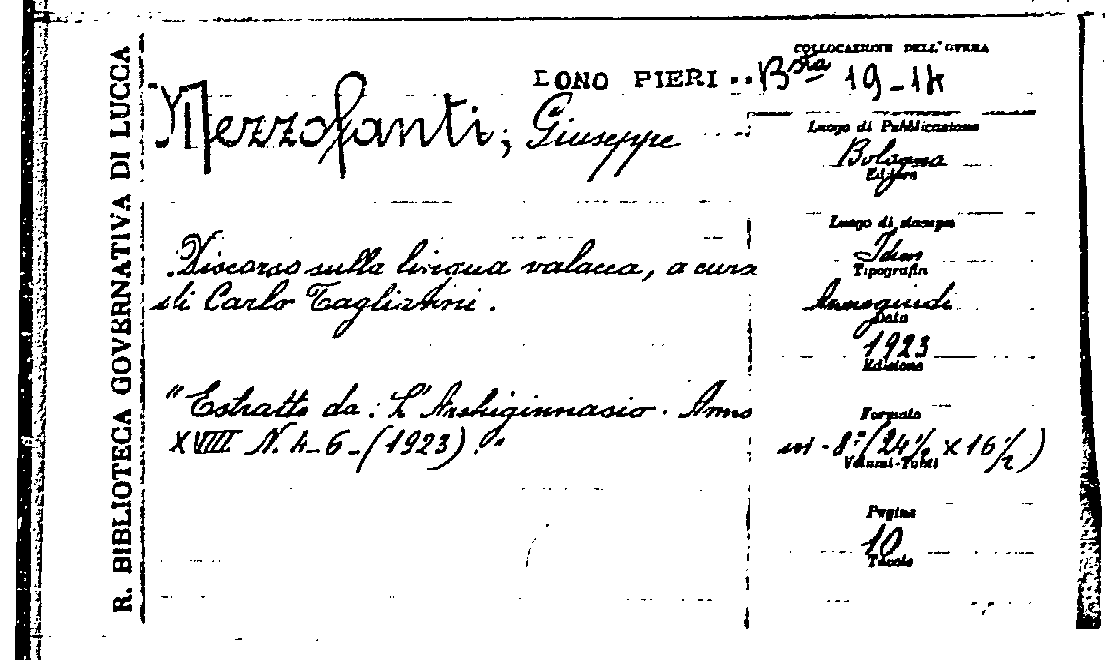 R. BIBLIOTECA GOVERNATIVA DI LUCCA
COLLOCAZIONE DELL'OPERA
DONO PIERI .. Bta 19-14
Mezzofanti, Giuseppe
Luogo di Pubblicazione
Bologna
Editore
Discorso sulla lingua valacca, a cura
di Carlo Tagliavini.
"Estratto da: L'Archiginnasio. Anno
XVIII N. 4-6-(1923)."
Luogo di stampa
Idem
Tipografia
Azzoguidi
Data
1923
Edizione
Formato
in-8° (24½ x 16½)
Volumi-Tomi
Pagine
10
Tavole